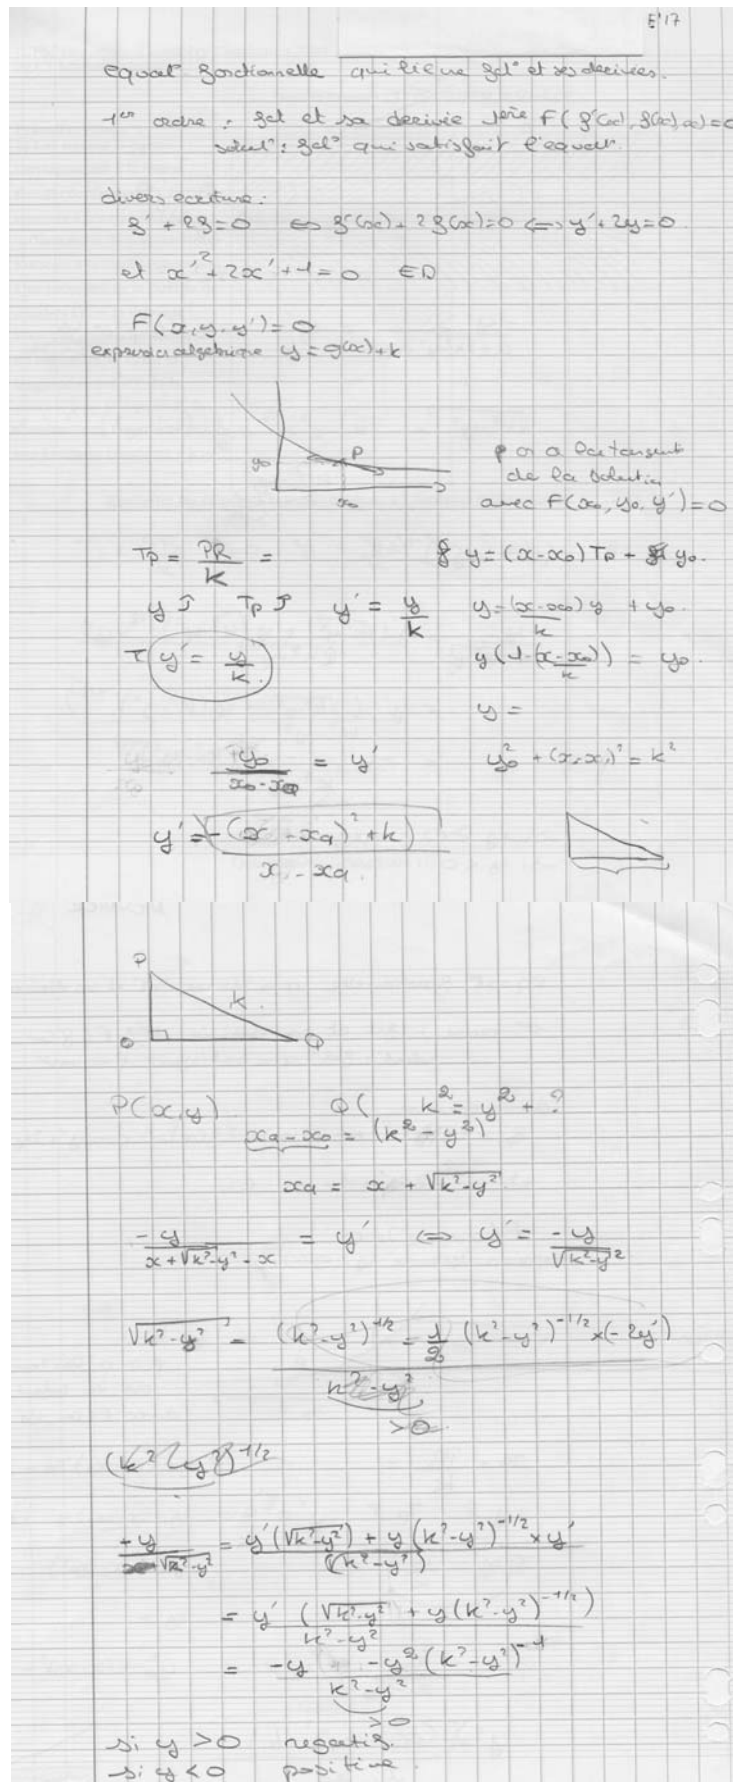 E'17
equat° fonctionnelle qui lie une fct° et ses derivées.
1er ordre : fct et sa derivée 1ère F(f'(x), f(x), x)=0
solut° : fct° qui satisfait l'equat°.
divers ecriture :
f' + 2f = 0 ⟺ f'(x) + 2f(x) = 0 ⟺ y' + 2y = 0.
et x'² + 2x' + 1 = 0 ED
F(x, y, y') = 0
algebrique y = g(x) + k
y0 P
x0
p on a la tangent
de la solution
avec F(x0, y0, y') = 0
Tp = PR/k = y = (x-x0) Tp + y0.
y Tp y' = y/k y = (x-x0)y/k + y0.
y' = y/k y(1-(x-x0)/k) = y0.
y =
y0/(x0-xQ) = y' y0² + (x-x)² = k²
y' = √(-(x-xQ)²+k)/(x-xQ)
P
k
O Q
P(x,y) Q( k² = y² + ?
xQ - x0 = (k² - y²)
xQ = x + √(k²-y²)
-y/(x+√(k²-y²)-x) = y' ⟺ y' = -y/√(k²-y²)
√(k²-y²) = (k²-y²)^-1/2 = 1/2 (k²-y²)^-1/2 × (-2y')
k²-y²
>0
(k²-y²)^-1/2
+y/√(k²-y²) = y'(√(k²-y²)) + y(k²-y²)^-1/2 × y'/(k²-y²)
= y'(√(k²-y²) + y(k²-y²)^-1/2)/(k²-y²)
= -y - y²(k²-y²)^-1/(k²-y²)
>0
si y > 0 negatif.
si y < 0 positive.